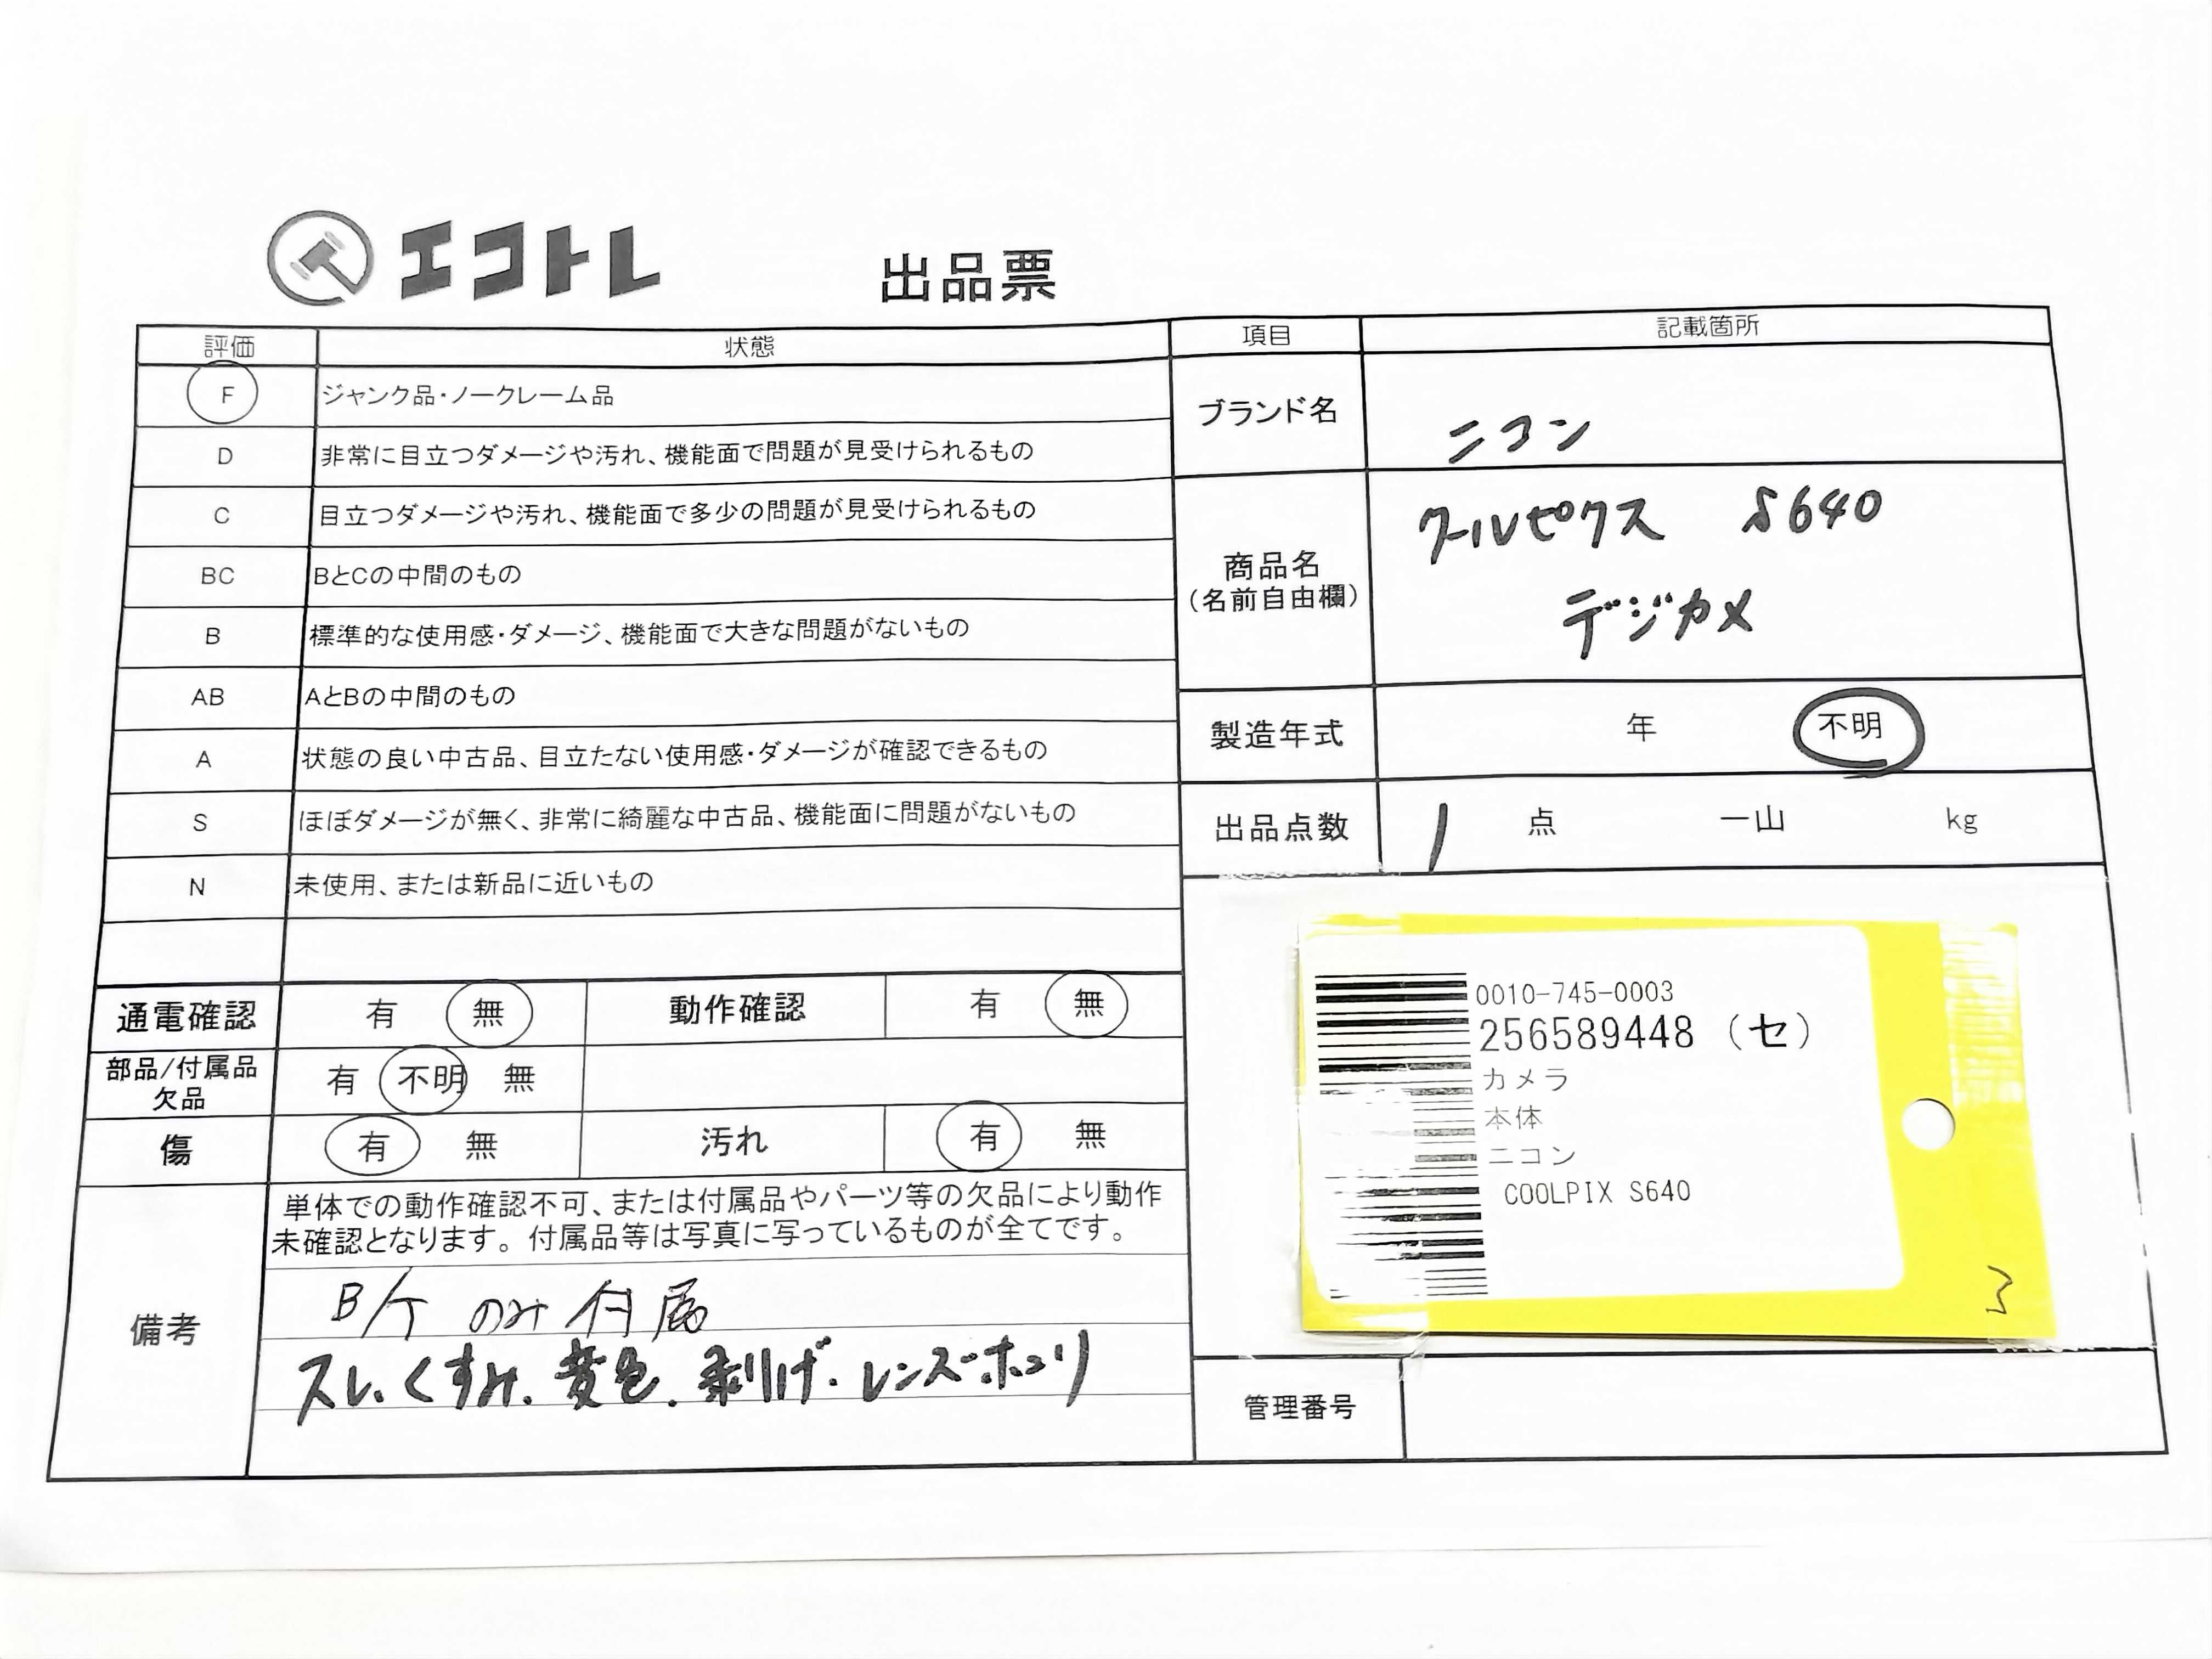 エコトレ
出品票
評価 状態
F ジャンク品・ノークレーム品
D 非常に目立つダメージや汚れ、機能面で問題が見受けられるもの
C 目立つダメージや汚れ、機能面で多少の問題が見受けられるもの
BC BとCの中間のもの
B 標準的な使用感・ダメージ、機能面で大きな問題がないもの
AB AとBの中間のもの
A 状態の良い中古品、目立たない使用感・ダメージが確認できるもの
S ほぼダメージが無く、非常に綺麗な中古品、機能面に問題がないもの
N 未使用、または新品に近いもの
通電確認 有 無 動作確認 有 無
部品/付属品
欠品
有 不明 無
傷 有 無 汚れ 有 無
備考
単体での動作確認不可、または付属品やパーツ等の欠品により動作
未確認となります。付属品等は写真に写っているものが全てです。
B/T のみ付属
スレ、くすみ、変色、剥げ、レンズホコリ
項目 記載箇所
ブランド名 ニコン
商品名
(名前自由欄)
クールピクス S640
デジカメ
製造年式 年 不明
出品点数 1 点 一山 kg
0010-745-0003
256589448 (セ)
カメラ
本体
ニコン
COOLPIX S640
管理番号